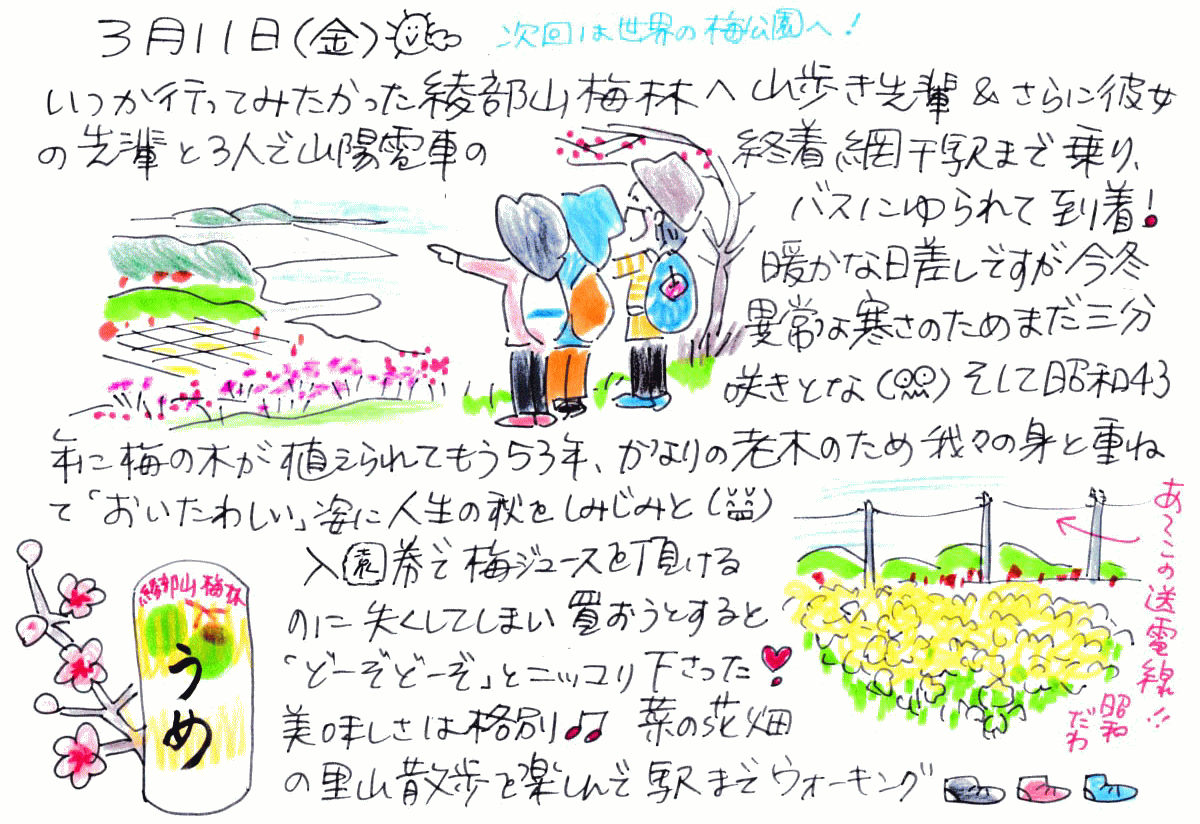 3月11日(金)
次回は世界の梅公園へ!
いつか行ってみたかった綾部山梅林へ山歩き先輩&さらに彼女
の先輩と3人で山陽電車の終着網干駅まで乗り、
バスにゆられて到着!
暖かな日差しですが今冬
異常な寒さのためまだ三分
咲きとな( )そして昭和43
年に梅の木が植えられてもう53年、かなりの老木のため我々の身と重ね
て「おいたわしい」姿に人生の秋をしみじみと( )
入園券で梅ジュースを頂ける
のに失くしてしまい買おうとすると
「どーぞどーぞ」とニッコリ下さった
美味しさは格別♪♫ 菜の花畑
の里山散歩を楽しんで駅までウォーキング
綾部山梅林
うめ
あ〜この送電線!!
昭和
だわ